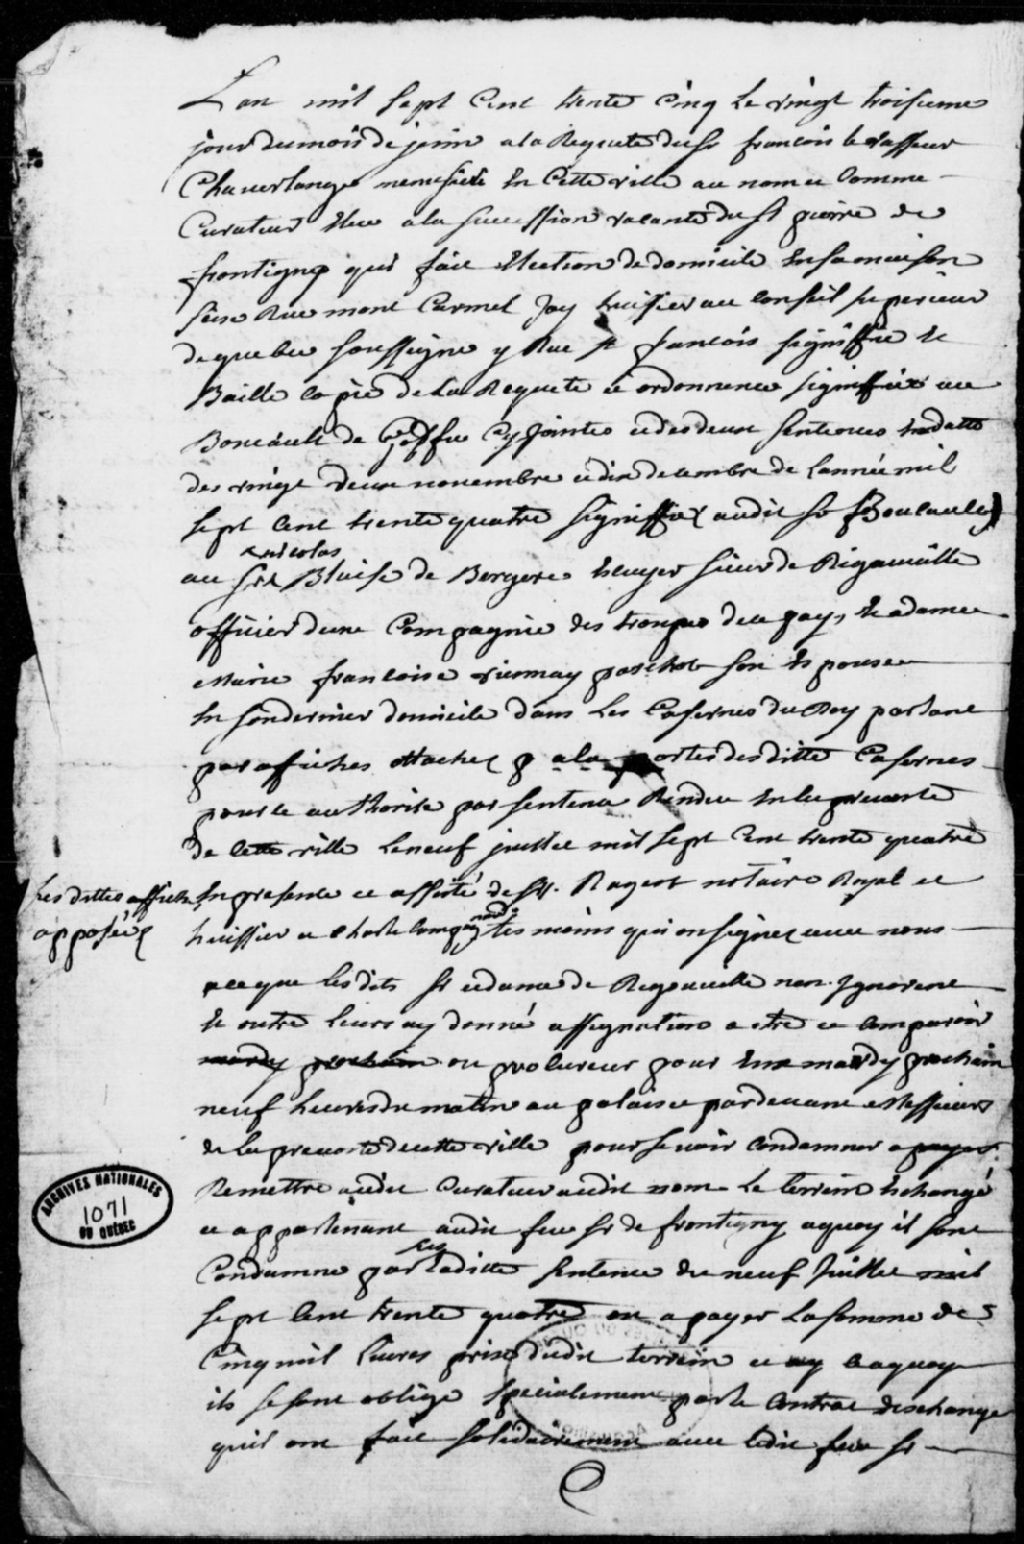 Lan mil sept Cent trente Cinq Le vingt troisieme
jour du mois de juin a la Requete du Sr francois le vasseur
menusier En Cette ville au nom et Comme
Curateur Eleu a la succession vacante du Sr pierre de
frontigny qui fait Election de domicile En sa maison
sise Rue mont Carmel Jay huissier au Conseil superieur
de quebec soussigne y Rue St francois signiffie et
Baille copie de la Requete et ordonnance signiffiée au
de Cy jointes et des deux sentences En datte
des vingt deux novembre et dix decembre de lannée mil
sept Cent trente quatre signiffiez audit Sr Boucault
nicolas
au Sr Blaise de Bergere Ecuyer sieur de Rigauville
officier dune Compagnie des troupes de ce pays Et a dame
Marie francoise viennay pachot son Epouse
En son dernier domicile dans Les Casernes du Roy parlant
par affiches attachez a la porte des dittes Casernes
pour ce authorisé par sentence Rendue En la prevosté
de Cette ville Le neuf juillet mil sept Cent trente quatre
Les dittes affiches
apposéez
En presence et assisté de Sr. Rageot notaire Royal et
huissier et temoins qui on signez avec nous
a ce que les dits Sr et dame de Rigauville nen Ignorent
Et outre leurs ay donné assignation a estre et Comparoir
mardy prochain ou procureur pour mardy prochain
neuf heures du matin au palais et pardevant Messieurs
de la prevosté de cette ville pour se voir Condamner a payer
Remettre audit Curateur audit nom Le terrein Echangé
et appartenant audit feu Sr de frontigny a quoy il sont
Condamné par Ladite sentence du neuf Juillet mil
sept Cent trente quatre ou a payer La somme de
Cinq mil Livres prix dudit terrein et a quoy
ils se sont obligé specialement par le Contrat deschange
quil ont fait solidairement avec Ledit feu Sr
ARCHIVES NATIONALES
1071
DU QUÉBEC